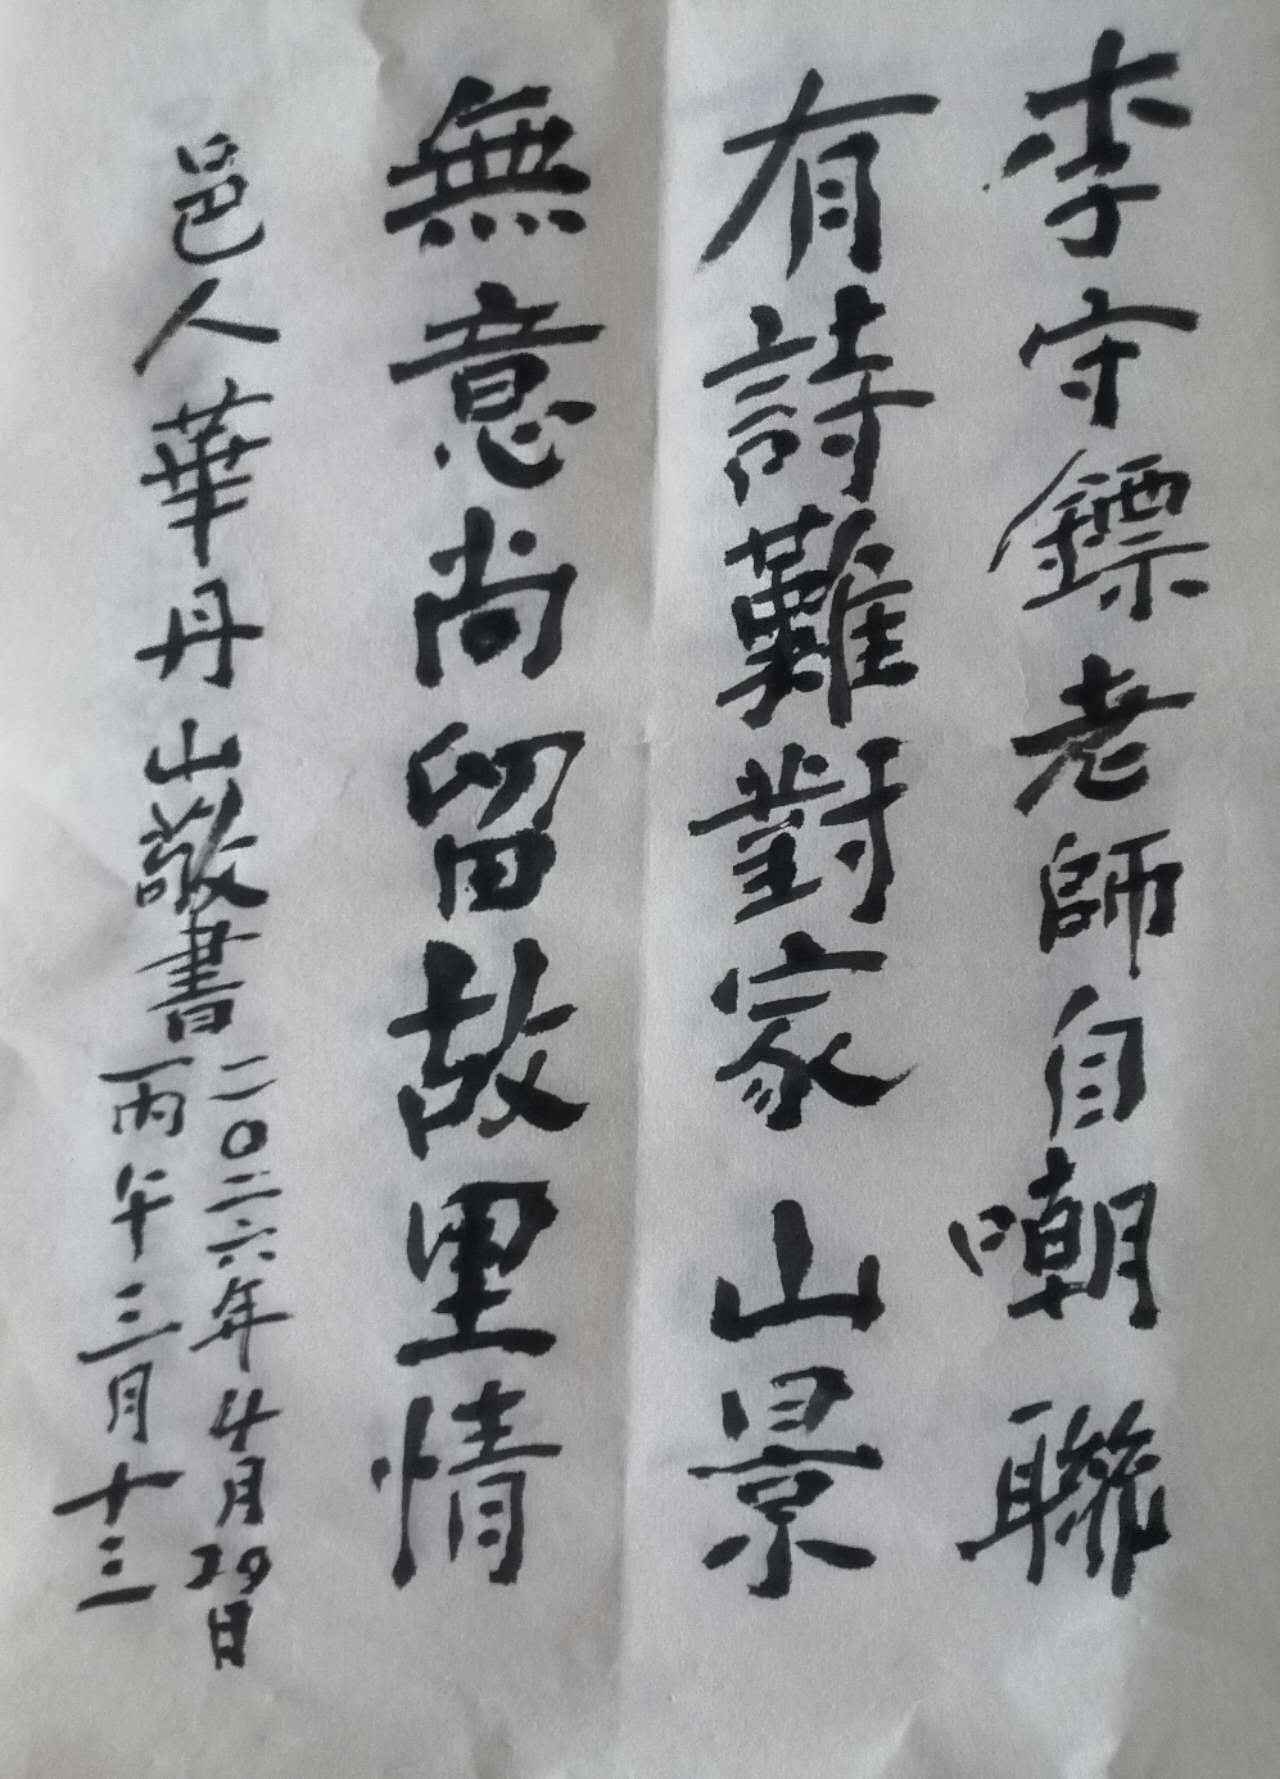 李守鏢老師自嘲聯
有詩難對家山景
無意尚留故里情
邑人華丹山敬書
二〇二六年4月29日
丙午三月十三